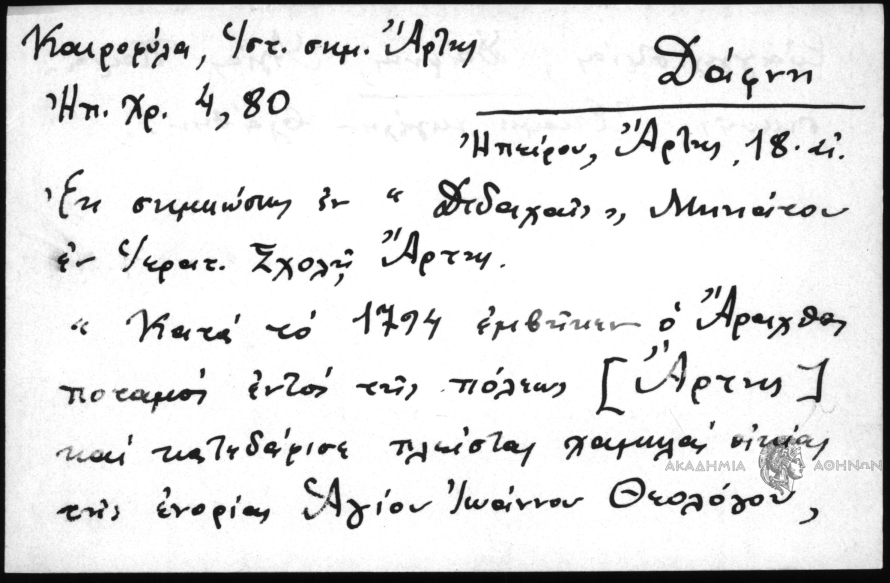 Καιρομύλα, Ἱστ. σημ. Ἄρτης
Δάφνη
Ἠπ. Χρ. 4, 80
Ἠπείρου, Ἄρτης, 18. αἰ.
Ἐκ σημειώσεως ἐν “ Διδαχαῖς „ Μηνιάτου
ἐν Ἱερατ. Σχολῇ Ἄρτης.
“ Κατά τό 1794 ἐμβῆκεν ὁ Ἄραχθος
ποταμός ἐντός τῆς πόλεως [Ἄρτης]
καί κατεδάρισε πλείστας χαμηλάς οἰκίας
ΑΚΑΔΗΜΙΑ ΑΘΗΝΩΝ
τῆς ἐνορίας Ἁγίου Ἰωάννου Θεολόγου,